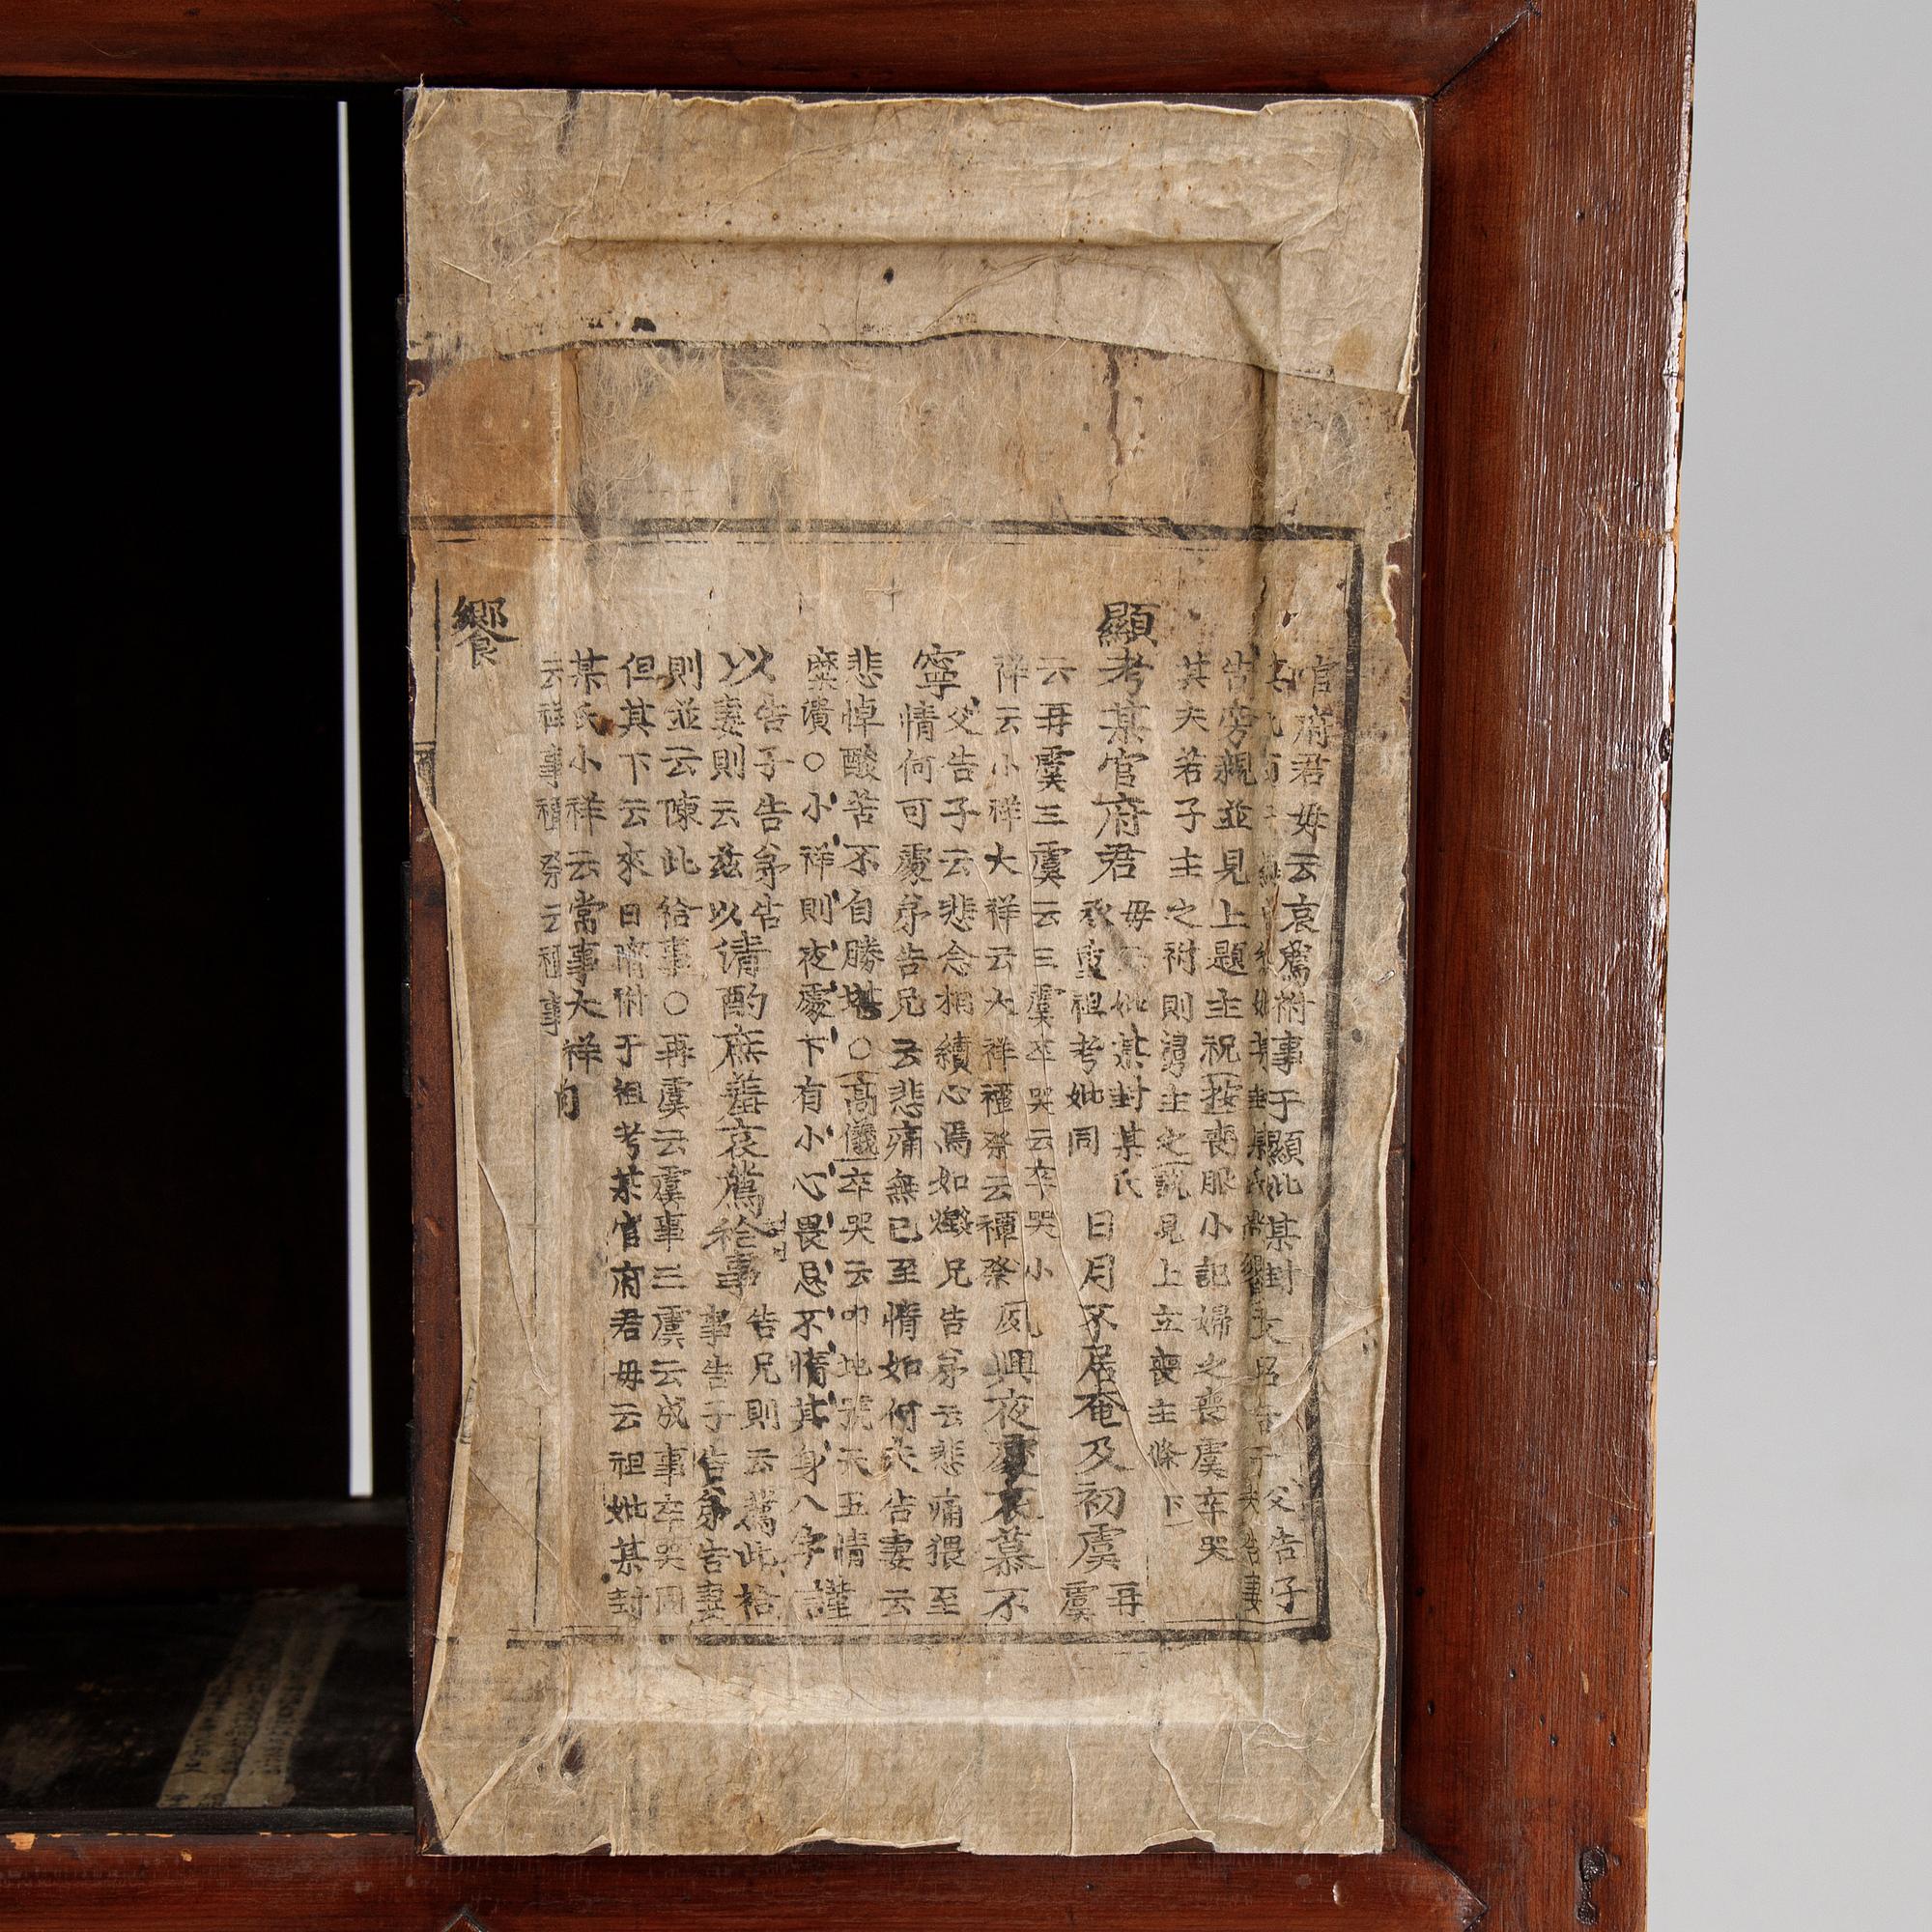 官府君母云哀薦祔事于顯妣某封
父告子
告旁親並見上題主祝按喪服小記婦之喪虞卒哭
其夫若子主之祔則舅主之說見上立喪主條下
顯考某官府君
母云妣某封某氏
承重祖考妣同
日月不居奄及初虞
再虞
云再虞三虞云三虞卒哭云卒哭小
祥云小祥大祥云大祥禫祭云禫祭
夙興夜處哀慕不
寧
父告子云悲念相續心焉如燬兄告弟云悲痛猥至
情何可處弟告兄云悲痛無已至情如何夫告妻云
悲悼酸苦不自勝堪○高儀卒哭云叩地號天五情
糜潰○小祥則夜處下有小心畏忌不惰其身八字
謹
以
告子告弟告
妻則云玆以
清酌庶羞哀薦祫事
告兄則云薦此祫
事告子告弟告妻
則並云陳此祫事○再虞云虞事三虞云成事卒哭同
但其下云來日隮祔于祖考某官府君母云祖妣某封
某氏小祥云常事大祥
云祥事禫祭云禫事
尙
饗